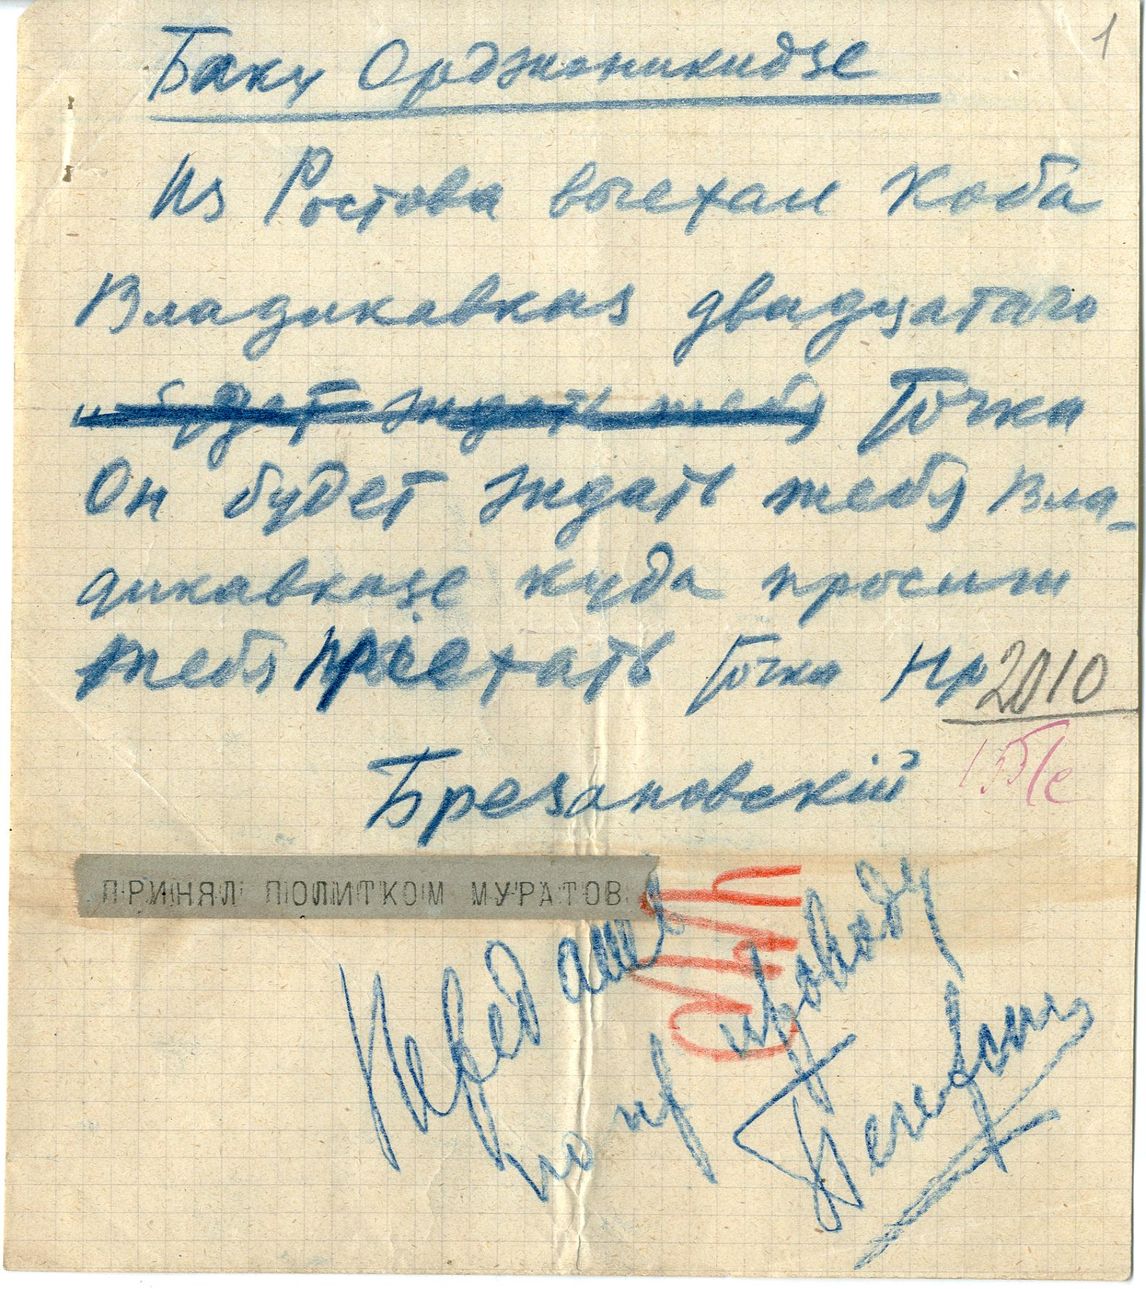 1
Баку Орджоникидзе
Из Ростова выехал Коба
Владикавказ двадцатого
и будет ждать тебя Точка
Он будет ждать тебя Вла-
дикавказе куда просит
тебя приехать Точка Нр 2010
Брезановскій
ПРИНЯЛ ПОЛИТКОМ МУРАТОВ
Передать
по пр проводу